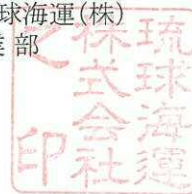 球海運(株)
業部
琉球海運
株式会社
之印